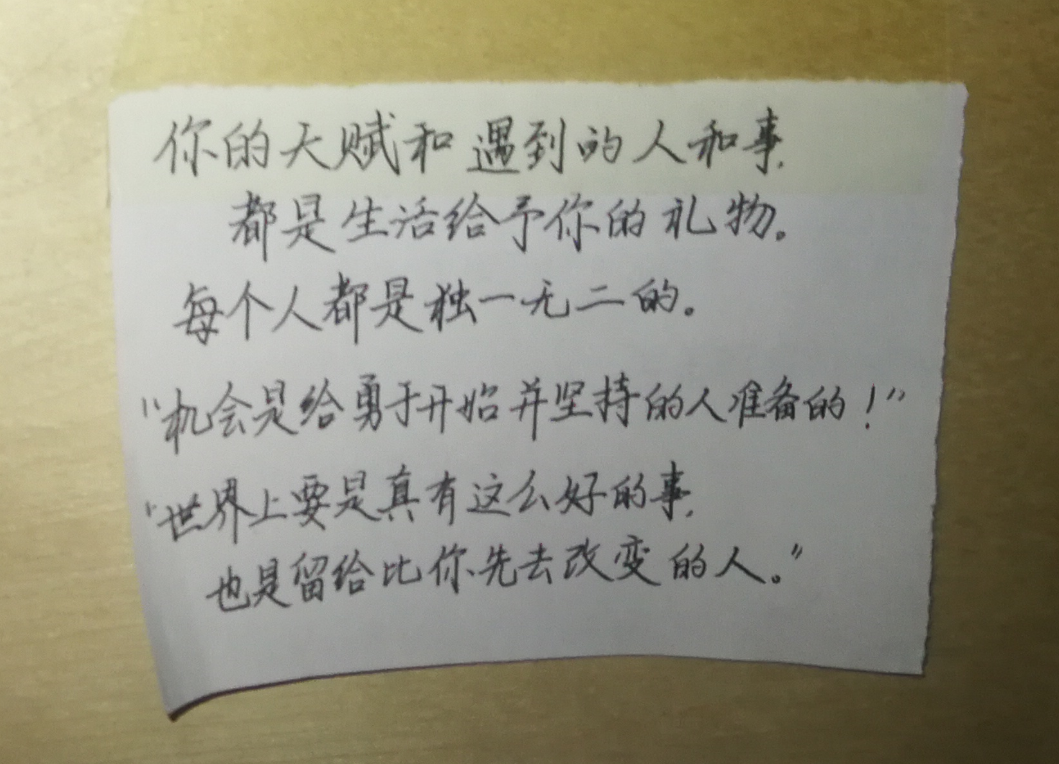 你的天赋和遇到的人和事,
都是生活给予你的礼物。
每个人都是独一无二的。
“机会是给勇于开始并坚持的人准备的!”
“世界上要是真有这么好的事,
也是留给比你先去改变的人。”